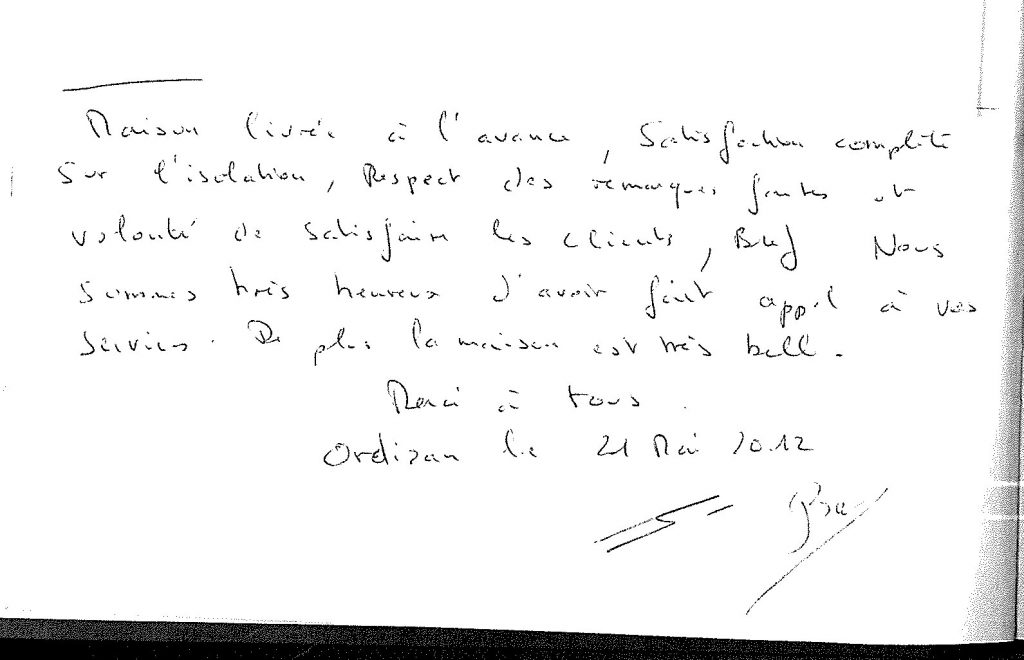 Maison livrée à l'avance, Satisfaction complète
Sur l'isolation, Respect des remarques faites et
volonté de satisfaire les clients, Bref Nous
sommes très heureux d'avoir fait appel à vos
services. De plus la maison est très belle.
Merci à tous.
Ordizan le 21 Mai 2012